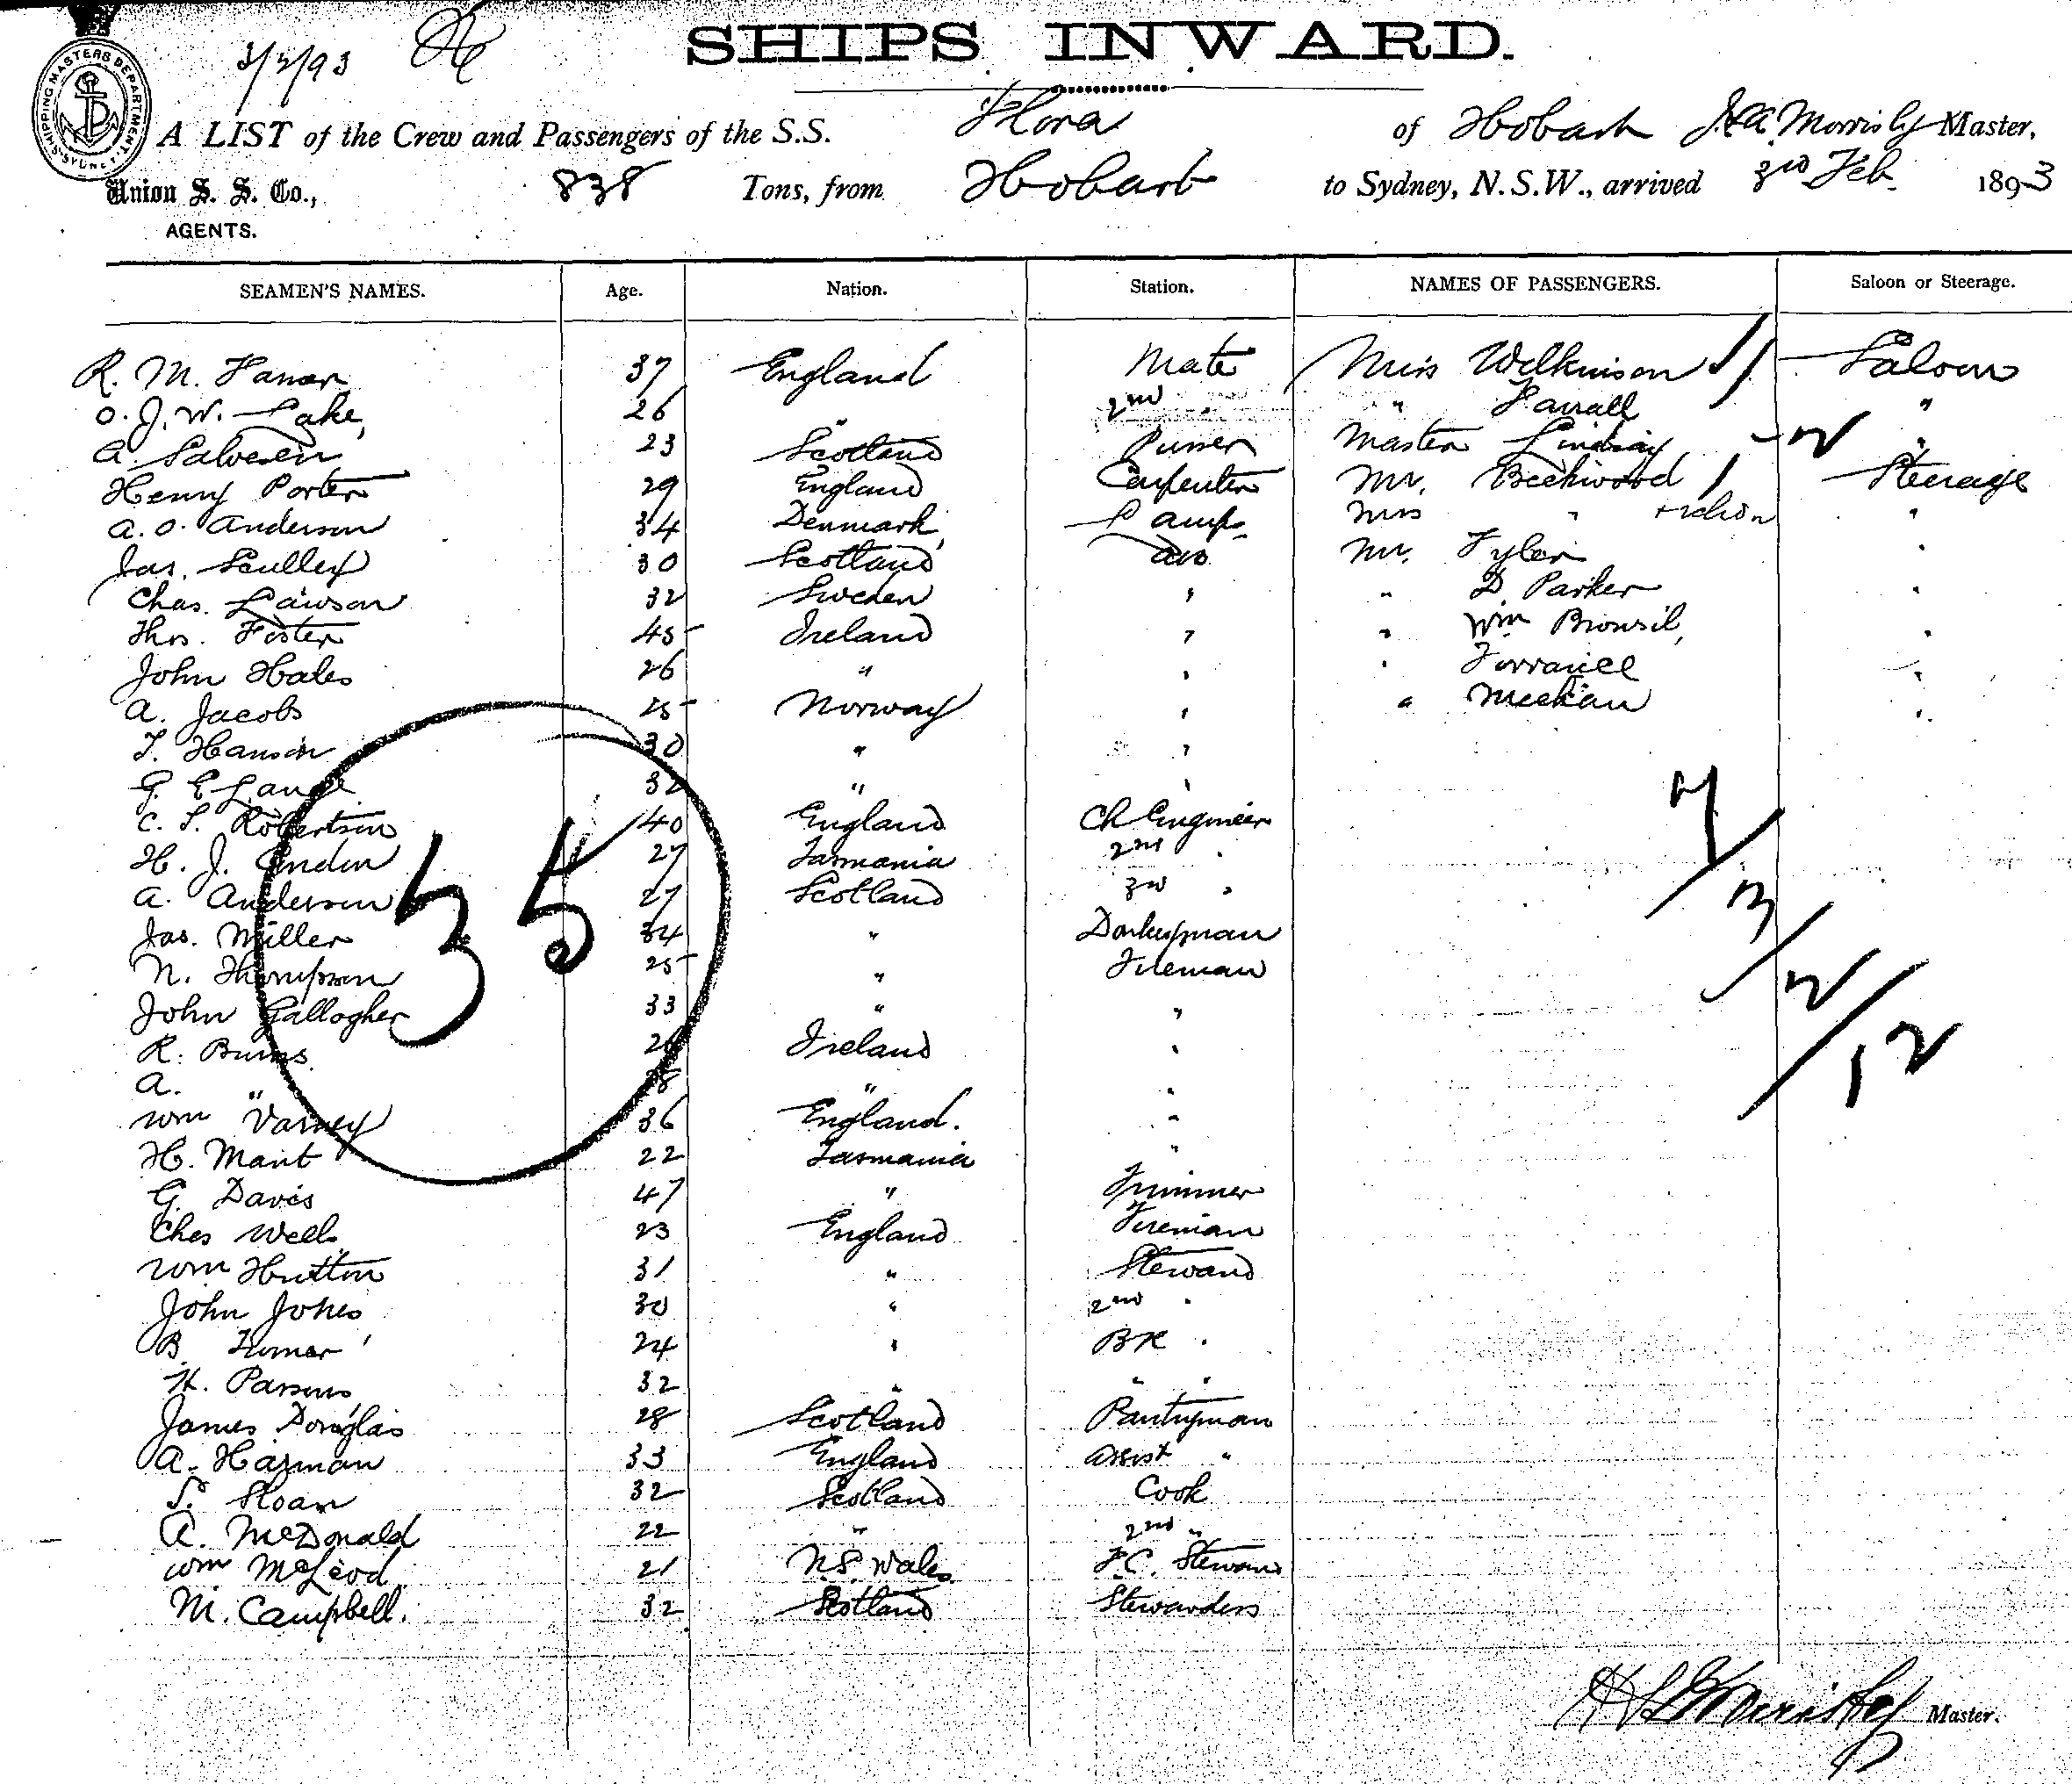 SHIPPING MASTERS DEPARTMENT SYDNEY
3/2/93
SHIPS INWARD.
A LIST of the Crew and Passengers of the S.S. Flora of Hobart Master,
Union S. S. Co., 838 Tons, from Hobart to Sydney, N.S.W., arrived 3rd Feb 1893
AGENTS.
SEAMEN'S NAMES. Age. Nation. Station. NAMES OF PASSENGERS. Saloon or Steerage.
R. M. 37 England Mate Miss Wilkinson Saloon
O. J. W. Lake, 26 " 2nd " " Farrall "
A. Salvesen 23 Scotland Purser Master Lindsay 2 "
Henry Porter 29 England Carpenter Mr. Beckwood Steerage
A. O. Anderson 34 Denmark Lamps Mrs " "
Jas. Sculley 30 Scotland AB Mr. Tyler "
Chas. Lawson 32 Sweden " " D. Parker "
Thos. Foster 45 Ireland " " Wm "
John Hales 26 " " " Torrance "
A. Jacobs 25 Norway " " Meehan "
T. Hansen 30 " "
G. E. Lange 32 " "
C. S. Robertson 40 England Ch Engineer
H. J. 27 Tasmania 2nd "
A. Anderson 27 Scotland 3rd "
Jas. Miller 34 " Donkeyman
N. Thompson 25 " Fireman
John Gallogher 33 " "
R. Burns 26 Ireland "
A. " 28 " "
Wm Varney 36 England. "
H. Mant 22 Tasmania "
G. Davis 47 " Trimmer
Chas Wells 23 England Fireman
Wm Hutton 31 " Steward
John Jones 30 " 2nd "
B. 24 " BK "
H. Parsons 32 " " "
James Douglas 28 Scotland Pantryman
A. Harman 33 England Assist "
S. Sloan 32 Scotland Cook
A. McDonald 22 " 2nd "
Wm McLeod 21 N.S. Wales F.C. Steward
M. Campbell. 32 Scotland Stewardess
35
7/3/2/12
Master.